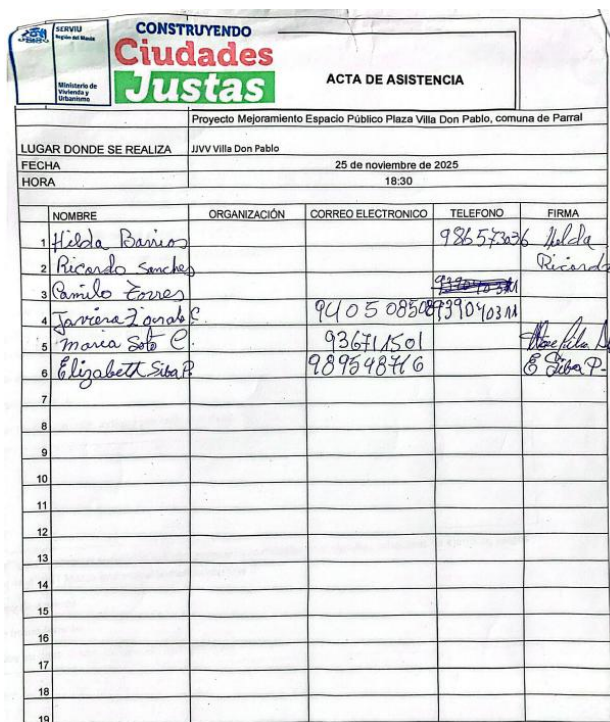 SERVIU
Región del Maule
Ministerio de
Vivienda y
Urbanismo
CONSTRUYENDO
Ciudades
Justas
ACTA DE ASISTENCIA
Proyecto Mejoramiento Espacio Público Plaza Villa Don Pablo, comuna de Parral
LUGAR DONDE SE REALIZA JJVV Villa Don Pablo
FECHA 25 de noviembre de 2025
HORA 18:30
NOMBRE ORGANIZACIÓN CORREO ELECTRONICO TELEFONO FIRMA
1 Hilda Barrios 986573036 Hilda
2 Ricardo Sanches Ricardo
3 Camilo Torres
4 Javiera C.
5 maria Soto C. 936711501
6 Elizabeth P. 989548766 E P.
7
8
9
10
11
12
13
14
15
16
17
18
19